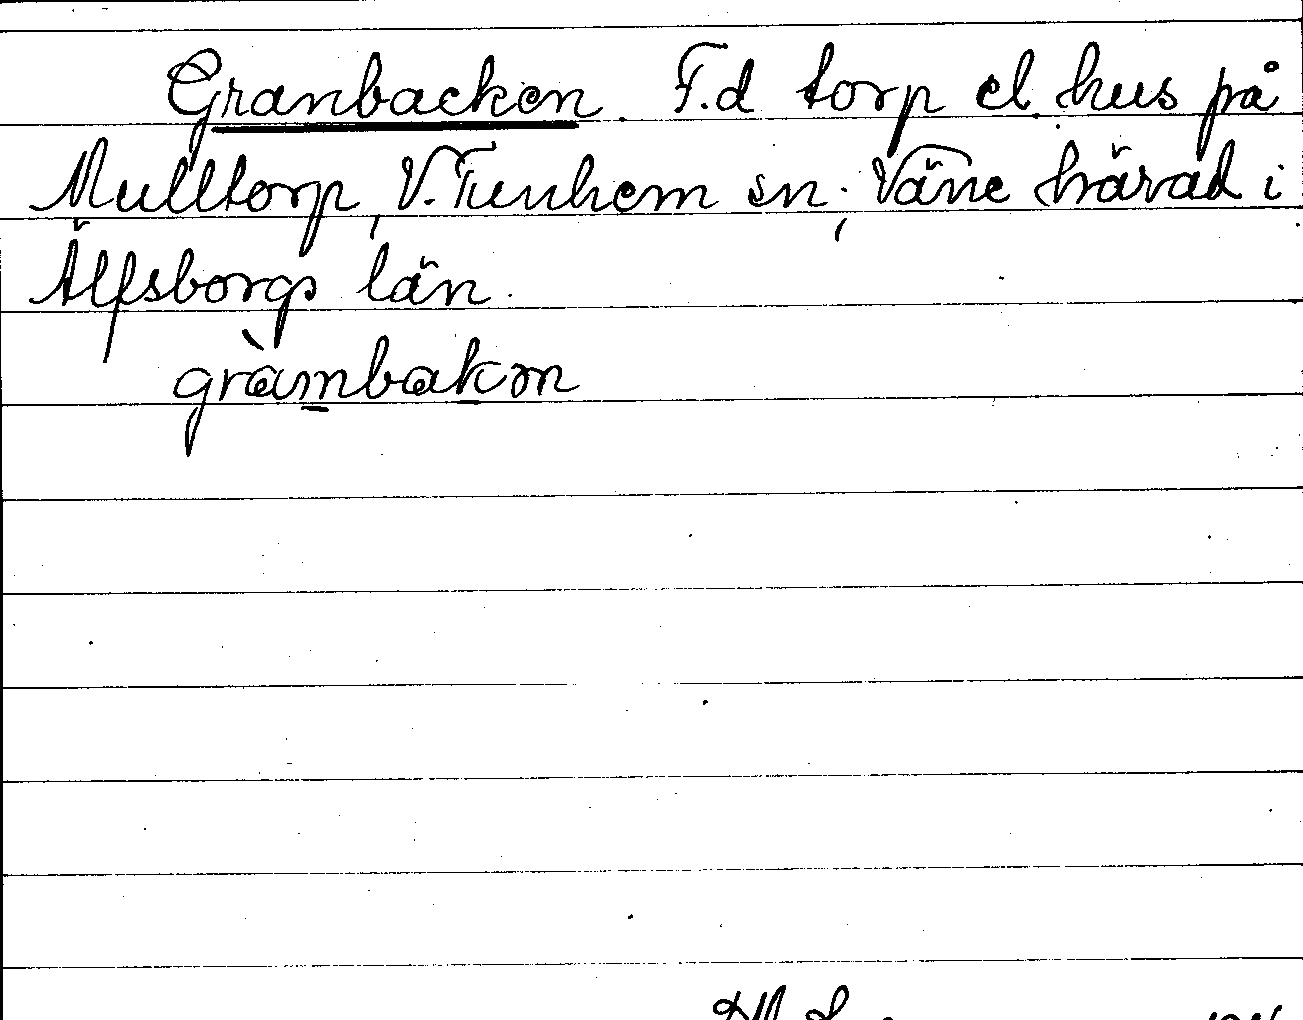 Granbacken. F.d torp el. hus på
Mulltorp, V. Tunhem sn; Väne härad i
Älfsborgs län.
gràmbakɷn